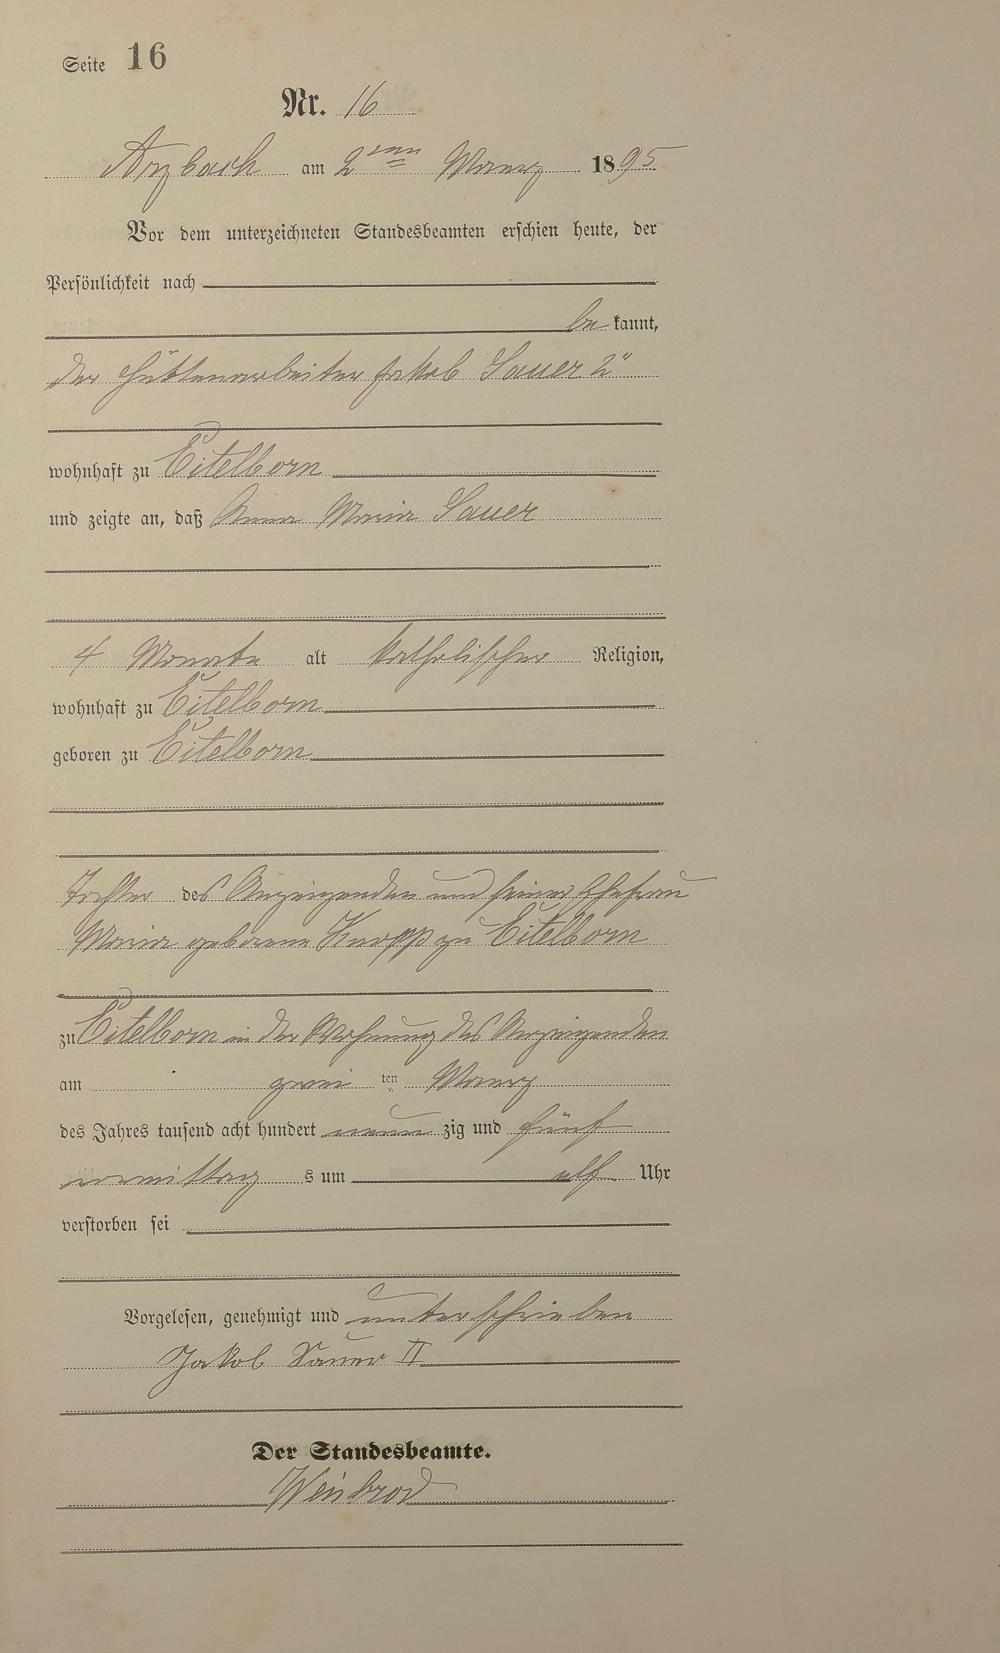 Seite 16
Nr. 16
Arzbach am 2ten Maerz 1895
Vor dem unterzeichneten Standesbeamten erschien heute, der
Persönlichkeit nach
be kannt,
der Hüttenarbeiter Jakob Sauer 2"
wohnhaft zu Eitelborn
und zeigte an, daß Anna Maria Sauer
4 Monate alt katholischer Religion,
wohnhaft zu Eitelborn
geboren zu Eitelborn
Tochter des Anzeigenden und seiner Ehefrau
Maria geborene Knopp zu Eitelborn
zu Eitelborn in der Wohnung des Anzeigenden
am zwei ten Maerz
des Jahres tausend acht hundert neun zig und fünf
vormittag s um elf Uhr
verstorben sei
Vorgelesen, genehmigt und unterschrieben
Jakob Sauer II
Der Standesbeamte.
Weisbrod